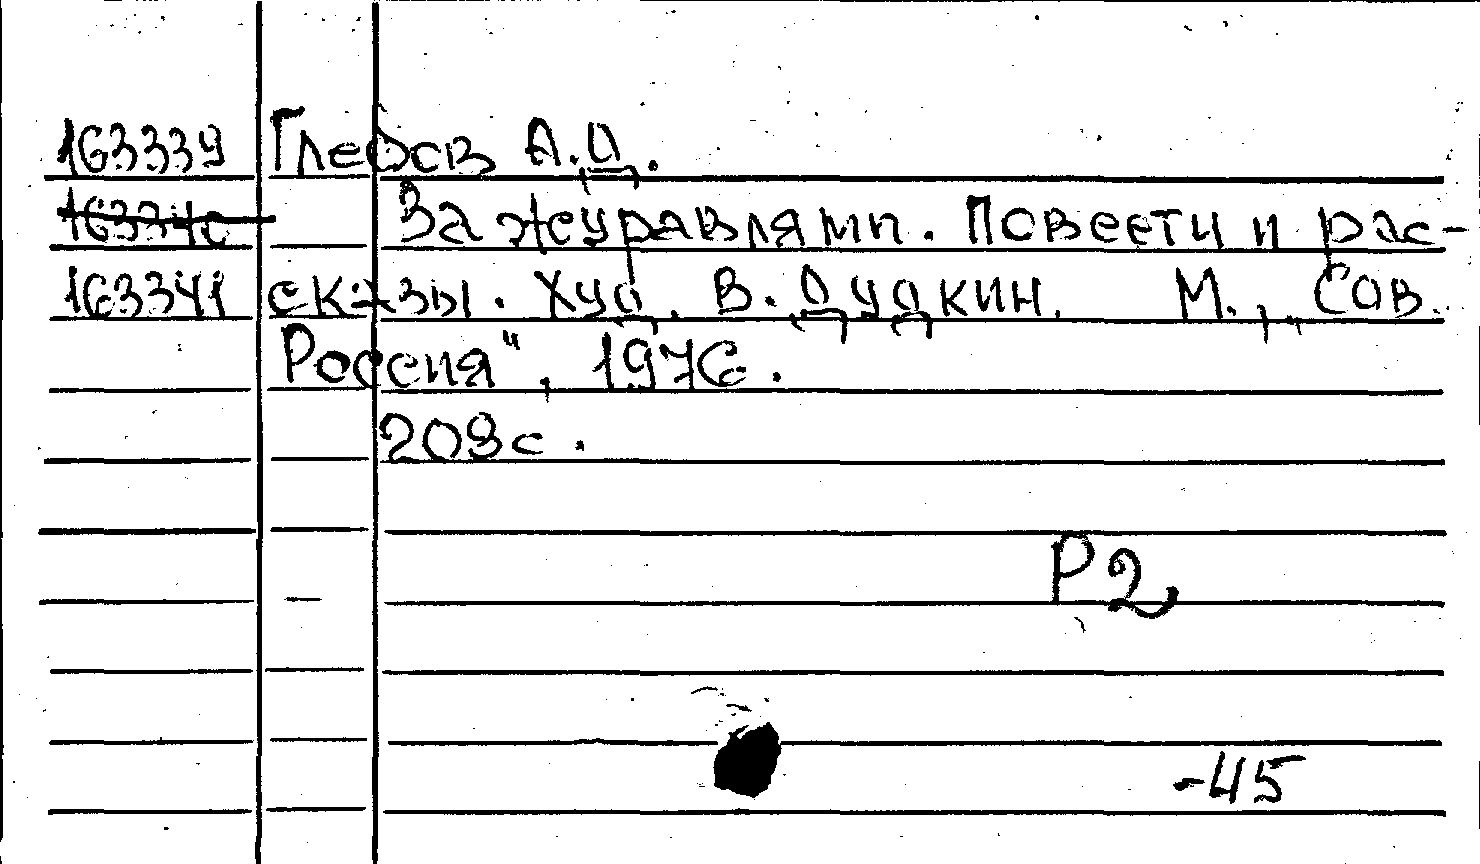 163339 Глебов А.Д.
163340 За журавлями. Повести и рас-
163341 сказы. Худ. В. Дудкин. М., „Сов.
Россия", 1976.
208с.
Р2
-45